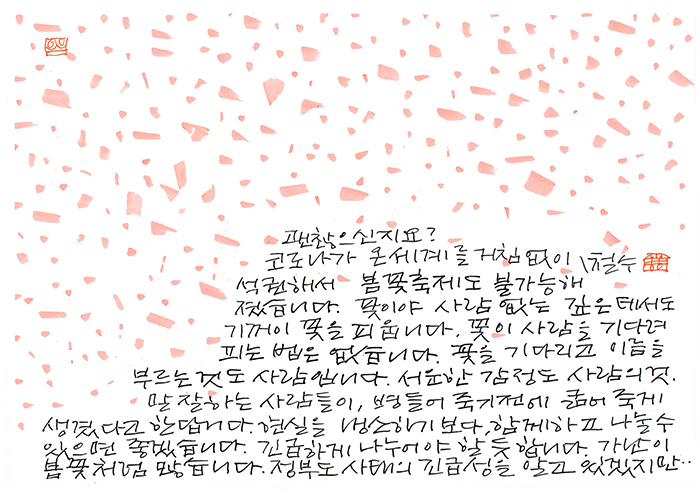 괜찮으신지요?
코로나가 온세계를 거침없이 \철수
석권해서 봄꽃축제도 불가능해
졌습니다. 꽃이야 사람 없는 깊은데서도
기꺼이 꽃을 피웁니다. 꽃이 사람을 기다려
피는 법은 없습니다. 꽃을 기다리고 이름을
부르는것도 사람입니다. 서운한 감정도 사람의것.
말 잘하는 사람들이, 병들어 죽기전에 굶어 죽게
생겼다고 한답니다. 현실을 냉소하기보다, 함께하고 나눌수
있으면 좋겠습니다. 긴급하게 나누어야 할 듯 합니다. 가난이
봄꽃처럼 많습니다. 정부도 사태의 긴급성을 알고 있겠지만..